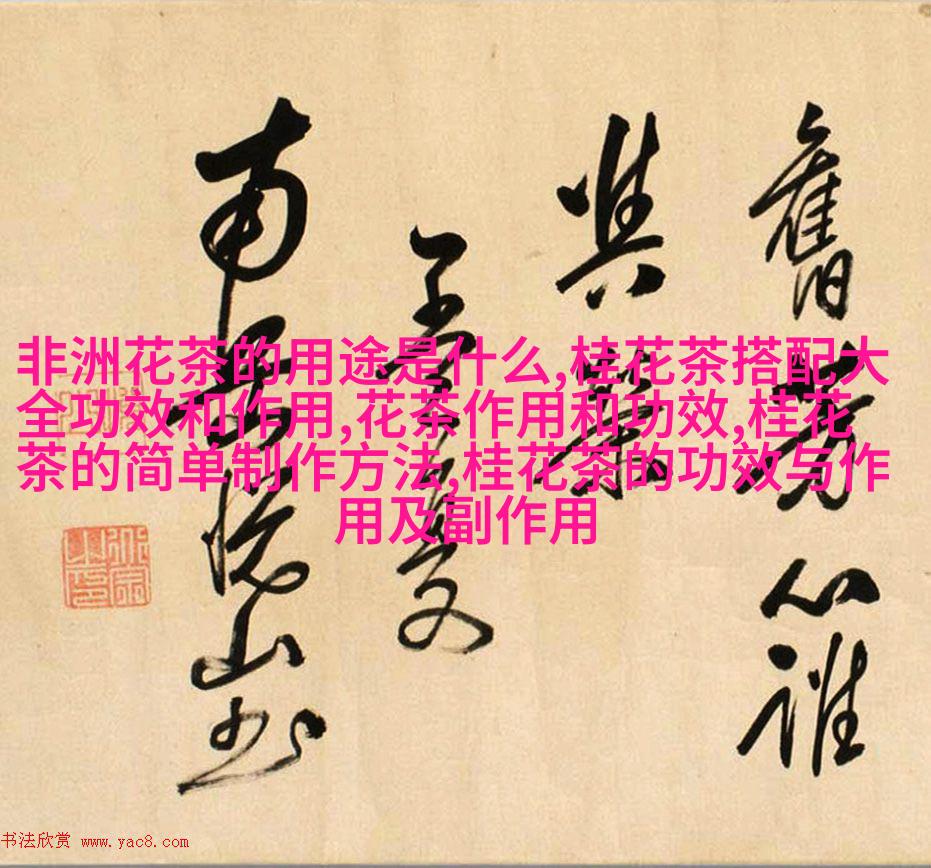 非洲花茶的用途是什么,桂花茶搭配大
全功效和作用,花茶作用和功效,桂花
茶的简单制作方法,桂花茶的功效与作
用及副作用
舊心誰
南嶽悅山书
书法欣赏 www.yac8.com